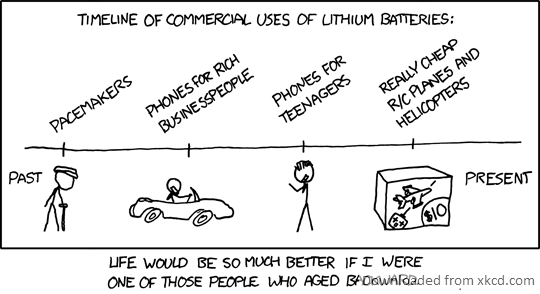 TIMELINE OF COMMERCIAL USES OF LITHIUM BATTERIES:
PACEMAKERS
PHONES FOR RICH
BUSINESSPEOPLE
PHONES FOR
TEENAGERS
REALLY CHEAP
R/C PLANES AND
HELICOPTERS
PAST
PRESENT
$10
LIFE WOULD BE SO MUCH BETTER IF I WERE
ONE OF THOSE PEOPLE WHO AGED
Downloaded from xkcd.com